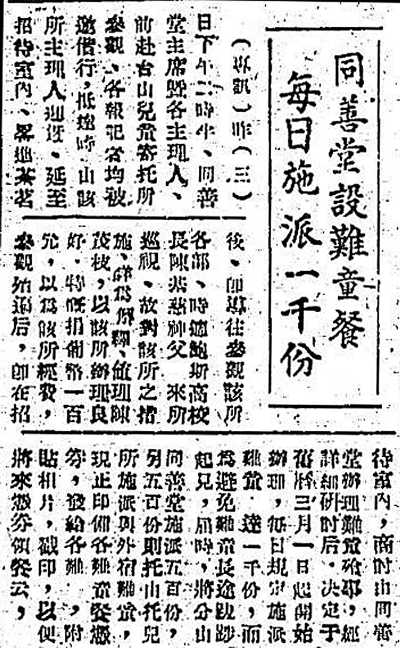 同善堂設難童餐
每日施派一千份
（專訊）昨（三）
日下午二時半、同善
堂主席暨各主理人、
前赴台山兒童寄托所
參觀、各報記者均被
邀偕行，抵達時，由該
所主理人迎迓、延至
招待室內、畧進茶茗
後、即導往參觀該所
各部、時適鮑斯高校
長陳基慈神父、來所
巡視、故對該所之措
施、詳為解釋、
以該所辦理良
好、特慨捐葡幣一百
元，以為該所經費，
參觀始遍后，即在招
待室內，商討由同善
堂辦理難童餐事，經
詳細研討后，決定于
舊曆三月一日起開始
辦理，每日規定施派
難童，達一千份，而
為避免難童長途跋跨
起見，屆時，將分由
同善堂施派五百份，
另五百份則托山托兒
所施派與外宿難童，
現正印備各難童餐憑
券，發給各難，附
貼相片，戳印，以便
將來憑券領餐云，